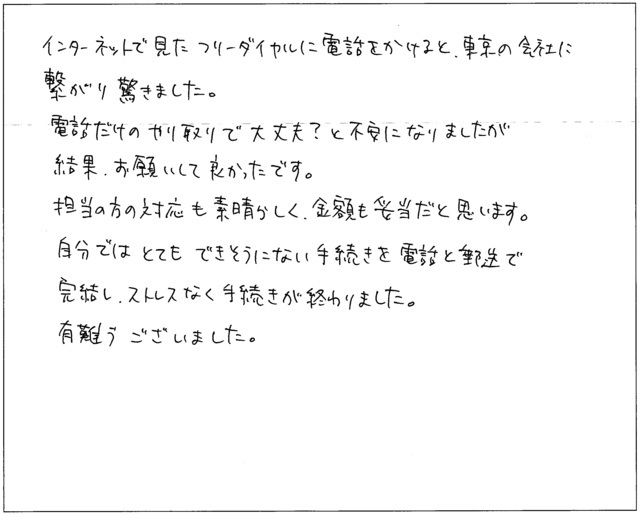 インターネットで見たフリーダイヤルに電話をかけると、東京の会社に
繋がり驚きました。
電話だけのやり取りで大丈夫？と不安になりましたが
結果、お願いして良かったです。
担当の方の対応も素晴らしく、金額も妥当だと思います。
自分ではとてもできそうにない手続きを電話と郵送で
完結し、ストレスなく手続きが終わりました。
有難うございました。